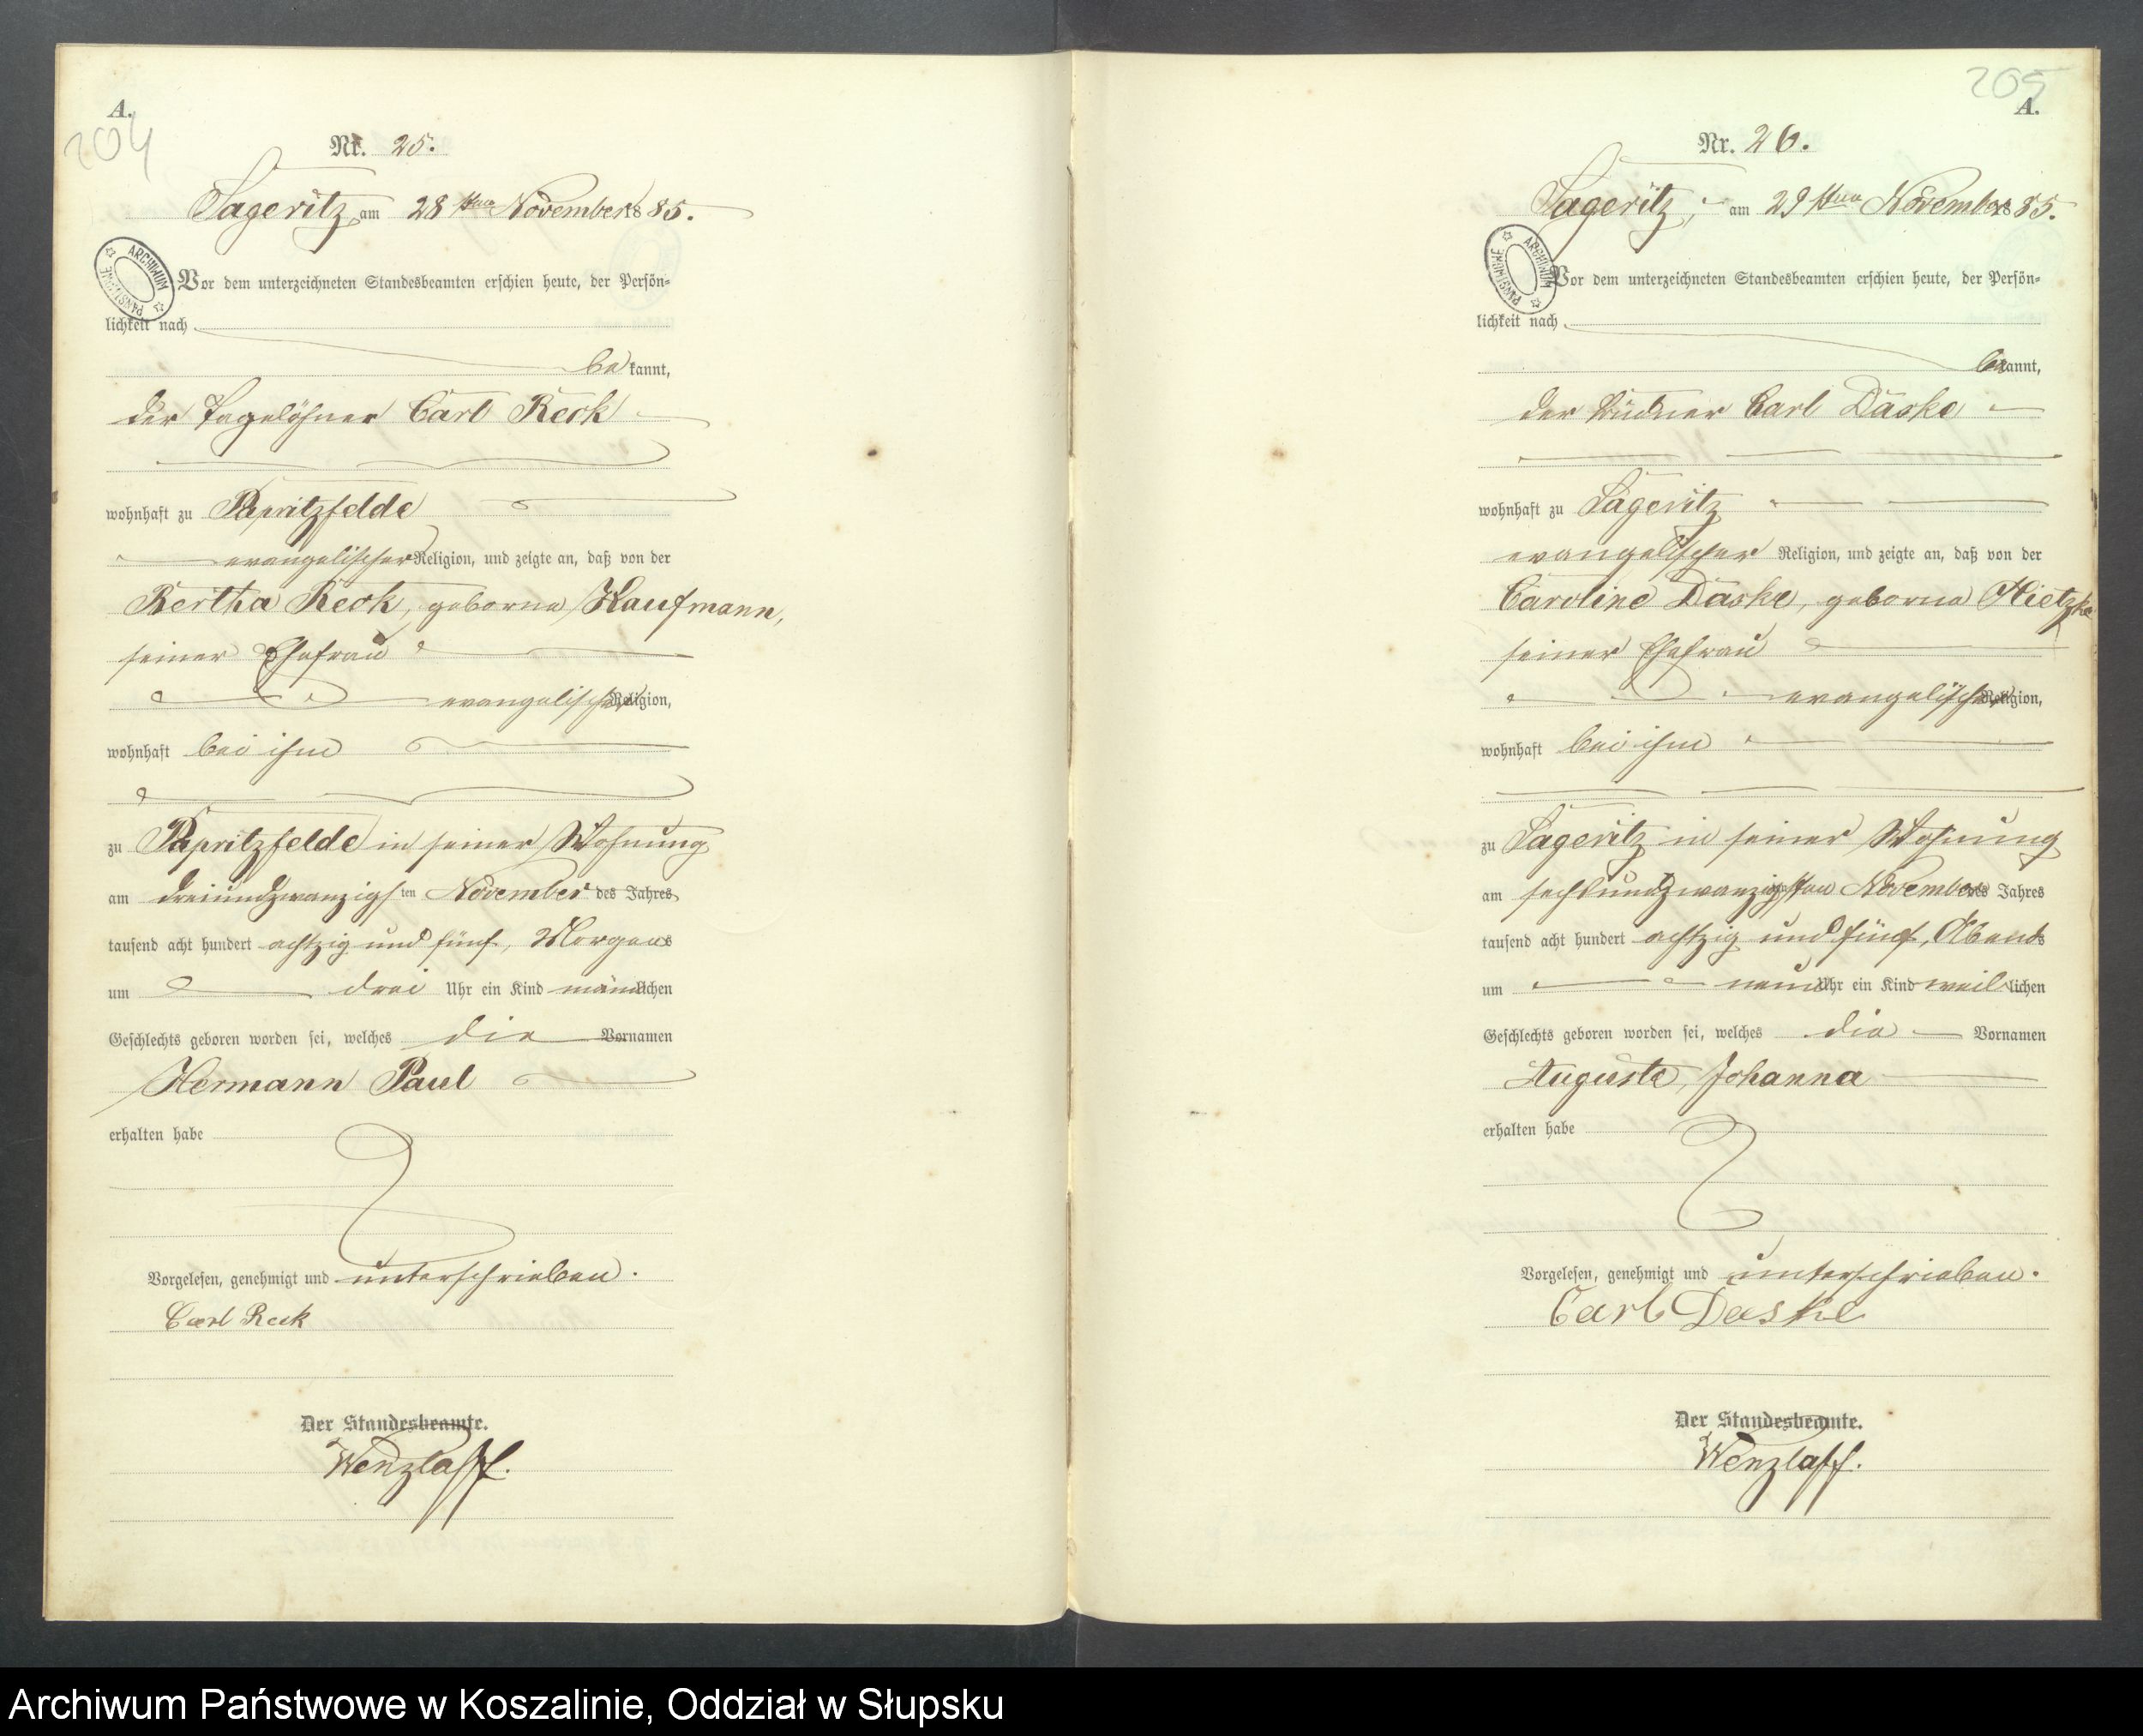 A.
204
Nr. 25.
Sageritz, am 28ten November 1885.
ARCHIWUM PAŃSTWOWE
Vor dem unterzeichneten Standesbeamten erschien heute, der Persön-
lichkeit nach
bekannt,
der Tagelöhner Carl Reck
wohnhaft zu Papritzfelde
evangelischer Religion, und zeigte an, daß von der
Bertha Reck, geborne Kaufmann,
seiner Ehefrau
evangelischer Religion,
wohnhaft bei ihm
zu Papritzfelde in seiner Wohnung
am dreiundzwanzigsten November des Jahres
tausend acht hundert achtzig und fünf, Morgens
um drei Uhr ein Kind männlichen
Geschlechts geboren worden sei, welches die Vornamen
Hermann Paul
erhalten habe
Vorgelesen, genehmigt und unterschrieben.
Carl Reck
Der Standesbeamte.
Wenzlaff.
205
A.
Nr. 26.
Sageritz, am 29ten November 1885.
ARCHIWUM PAŃSTWOWE
Vor dem unterzeichneten Standesbeamten erschien heute, der Persön-
lichkeit nach
bekannt,
der Büdner Carl Daske
wohnhaft zu Sageritz
evangelischer Religion, und zeigte an, daß von der
Caroline Daske, geborne
seiner Ehefrau
evangelischer Religion,
wohnhaft bei ihm
zu Sageritz in seiner Wohnung
am sechsundzwanzigsten November des Jahres
tausend acht hundert achtzig und fünf, Abends
um neun Uhr ein Kind weiblichen
Geschlechts geboren worden sei, welches die Vornamen
Auguste, Johanna
erhalten habe
Vorgelesen, genehmigt und unterschrieben.
Carl Daske
Der Standesbeamte.
Wenzlaff.
Archiwum Państwowe w Koszalinie, Oddział w Słupsku